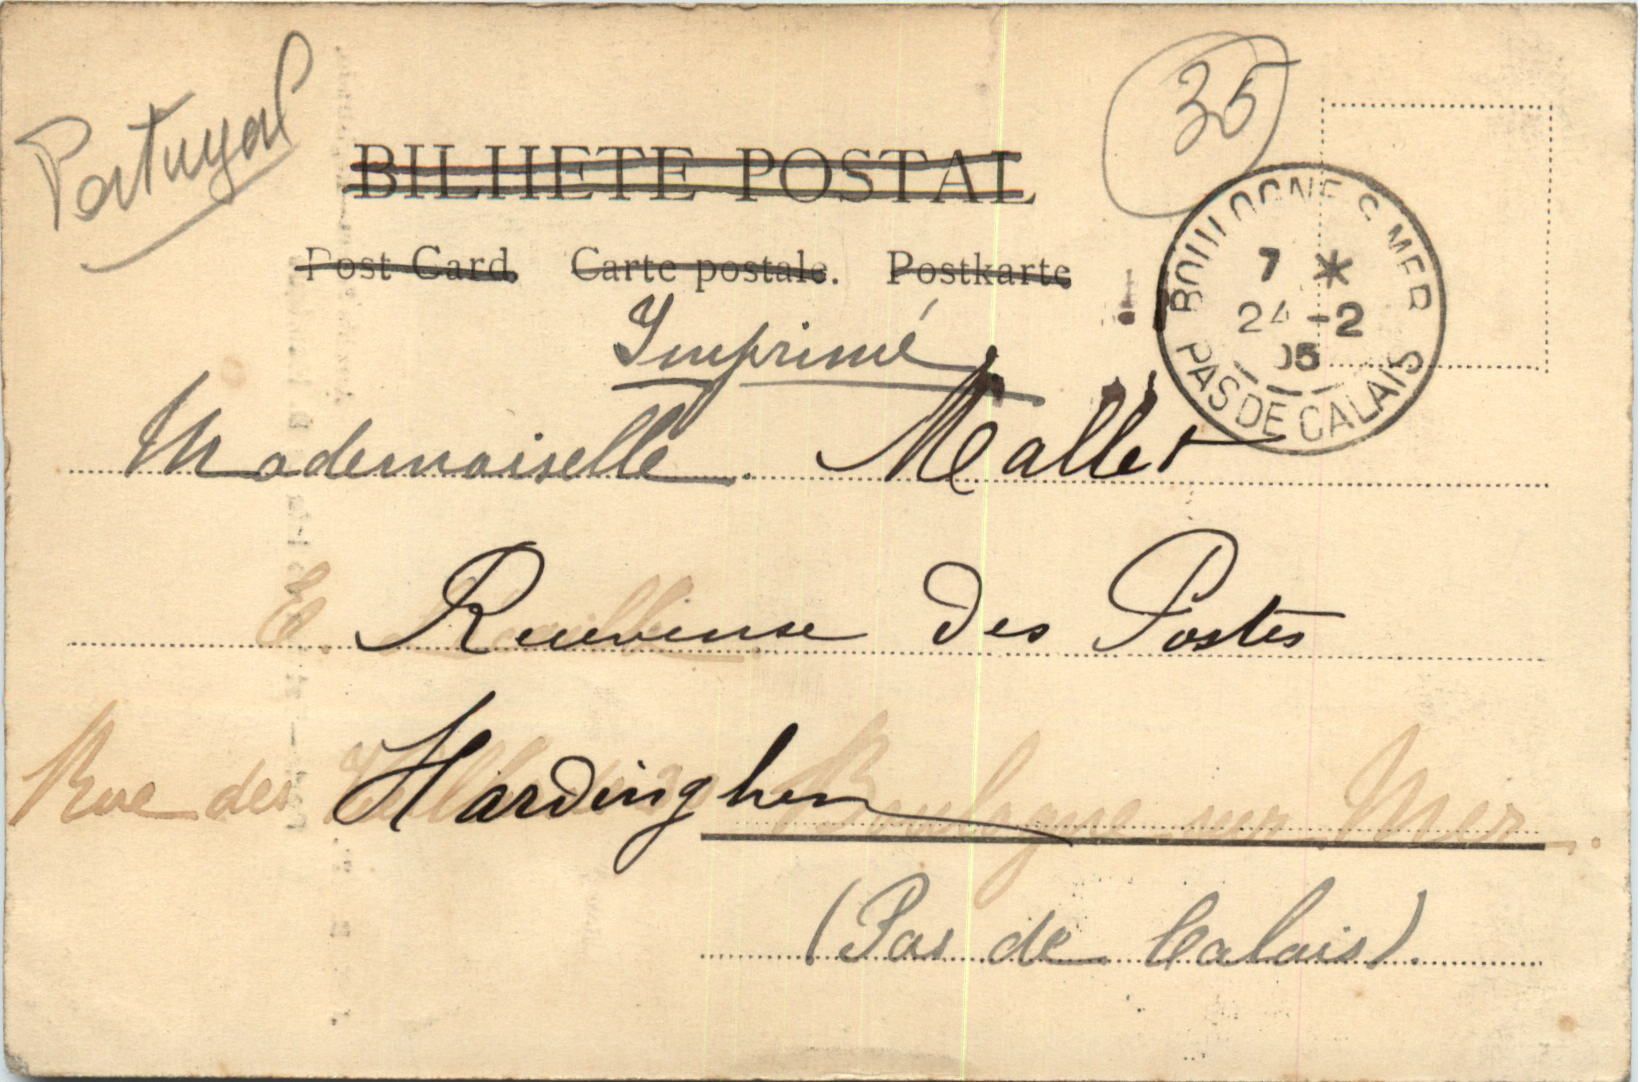 Portugal
35
BILHETE POSTAL
Post Card. Carte postale. Postkarte
BOULOGNE S MER
7 *
24 -2
05
PAS DE CALAIS
Imprimé
Mademoiselle Mallet
E. Receveuse des Postes
Rue des Hardinghen Boulogne sur Mer.
(Pas de Calais).